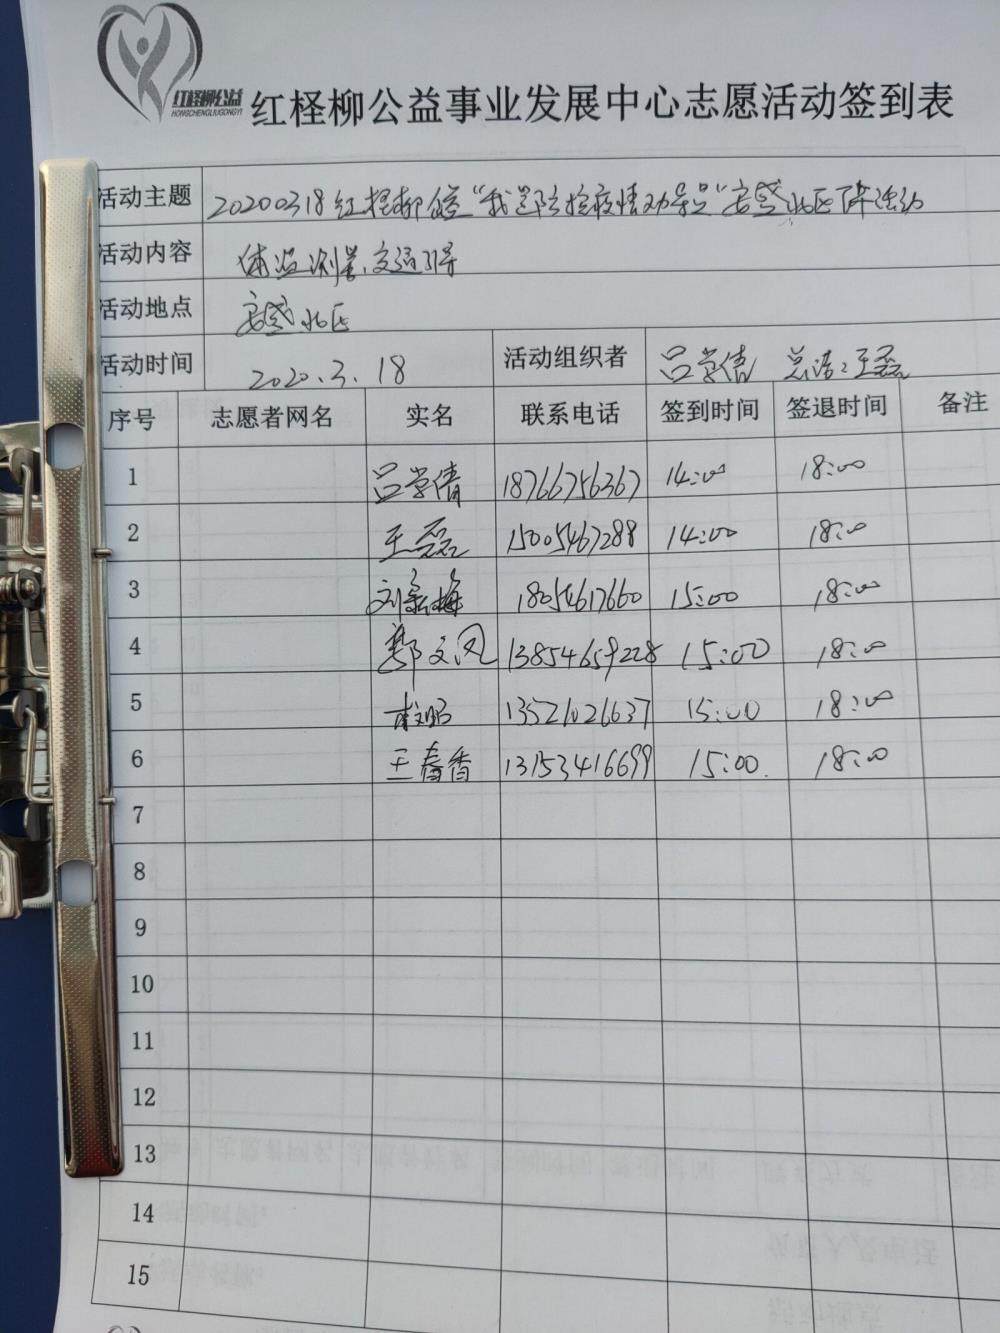 红柽柳公益
HONGCHENGLIUGONGYI
红柽柳公益事业发展中心志愿活动签到表
活动主题 20200318红柽柳 "我是防控疫情劝导员"安盛北区 活动
活动内容 体温测量、交通引导
活动地点 安盛北区
活动时间 2020.3.18 活动组织者 吕学倩 王磊
序号 志愿者网名 实名 联系电话 签到时间 签退时间 备注
1 吕学倩 18766756367 14:00 18:00
2 王磊 15005467288 14:00 18:00
3 18054617660 15:00 18:00
4 郑文凤 13854659228 15:00 18:00
5 13521026637 15:00 18:00
6 王春香 13153416699 15:00 18:00
7
8
9
10
11
12
13
14
15